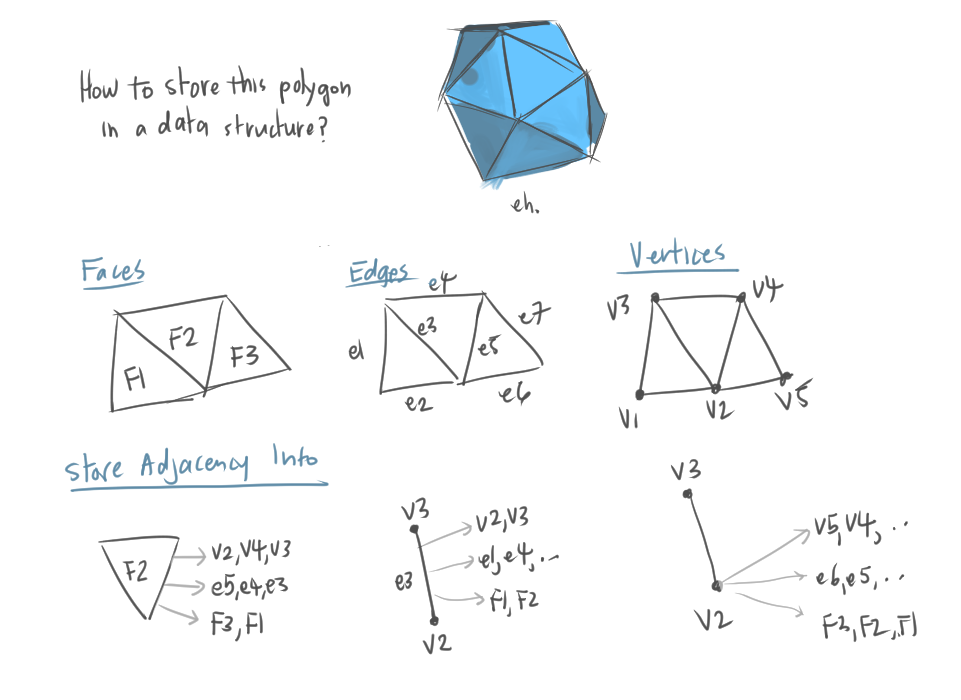 How to store this polygon
in a data structure?
eh.
Faces
F1
F2
F3
Edges
e4
e1
e3
e5
e7
e2
e6
Vertices
V3
V4
V1
V2
V5
Store Adjacency Into
F2
V2, V4, V3
e5, e4, e3
F3, F1
V3
e3
V2
V2, V3
e1, e4, ...
F1, F2
V3
V2
V5, V4, ..
e6, e5, ..
F3, F2, F1